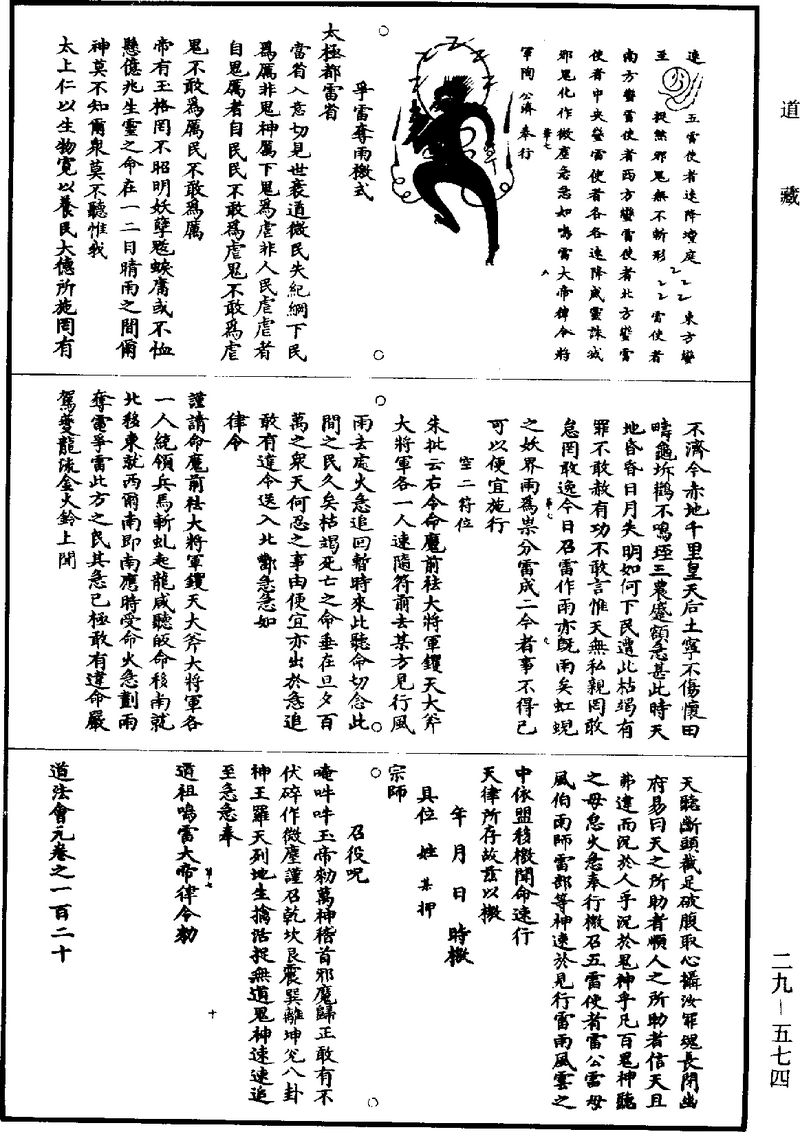 道藏
速 五雷使者速降壇庭 東方蠻
至 捉然邪鬼無不斬形 雷使者
南方蠻雷使者西方蠻雷使者北方蠻雷
使者中央蠻雷使者各各速降威靈誅滅
邪鬼化作微塵急急如鳴雷大帝律令將
軍陶公濟奉行
爭雷奪雨檄式
太極都雷省
當省入意切見世衰道微民失紀綱下民
為厲非鬼神厲下鬼為虐非人民虐虐者
自鬼厲者自民民不敢為虐鬼不敢為虐
鬼不敢為厲民不敢為厲
帝有玉格罔不昭明妖孽魑蜮腐或不恤
懸億兆生靈之命在一二日晴雨之間爾
神莫不知爾衆莫不聽惟我
太上仁以生物寬以養民大德所施罔有
不濟今赤地千里皇天后土寧不傷懷田
疇龜坼鸛不鳴垤三農蹙額急甚此時天
地昏昏日月失明如何下民遭此枯竭有
罪不敢赦有功不敢言惟天無私親罔敢
怠罔敢逸今日召雷作雨亦旣雨矣虹蜺
之妖界雨為祟分雷成二今者事不得已
可以便宜施行
空二符位
朱批云右令命魔前祛大將軍钁天大斧
大將軍各一人速隨符前去某方見行風
雨去處火急追回暫時來此聽命切念此
間之民久矣枯竭死亡之命垂在旦夕百
萬之衆天何忍之事由便宜亦出於急追
敢有違令送入北酆急急如
律令
謹請命魔前祛大將軍钁天大斧大將軍各
一人統領兵馬斬虬起龍咸聽皈命移南就
北移東就西爾南即南應時受命火急劃雨
奪電爭雷此方之民其急已極敢有違命嚴
駕夔龍流金火鈴上聞
天聽斷頭截足破腹取心攝汝罪魂長閉幽
府易曰天之所助者順人之所助者信天且
弗違而況於人乎況於鬼神乎凡百鬼神聽
之毋怠火急奉行檄召五雷使者雷公雷母
風伯雨師雷部等神速於見行雷雨風雲之
中依盟移檄聞命速行
天律所存故茲以檄
年 月 日 時檄
具位 姓 某 押
宗師
召役呪
唵吽吽玉帝勑萬神稽首邪魔歸正敢有不
伏碎作微塵謹召乾坎艮震巽離坤兌八卦
神王羅天列地生擒活捉無道鬼神速速追
至急急奉
道祖鳴雷大帝律令勑
道法會元卷之一百二十
二九－五七四